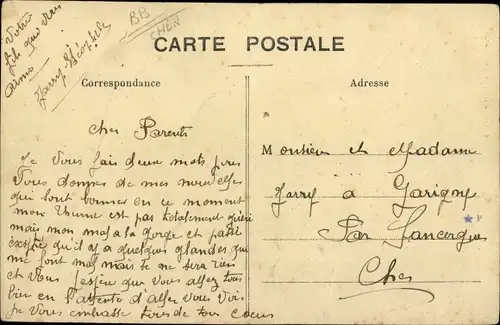 Votre
fils qui vous
aime
Jarry Théophile
BB
CHER
CARTE POSTALE
Correspondance
Adresse
cher Parents
Je Vous fais deux mots pour
Vous donner de mes nouvelles
qui sont bonnes en ce moment
mon Rhume est pas totalement guéri
mais mon mal a la gorge et passé
est qu'il y a quelques glandes qui
me font mal mais se ne sera rien
et Vous j'espère que Vous allez tous
bien en l'attente d'aller Vous Voir
je Vous embrasse tous de tou coeur
Monsieur et Madame
Jarry a Garigny
Par Sancergues
Cher